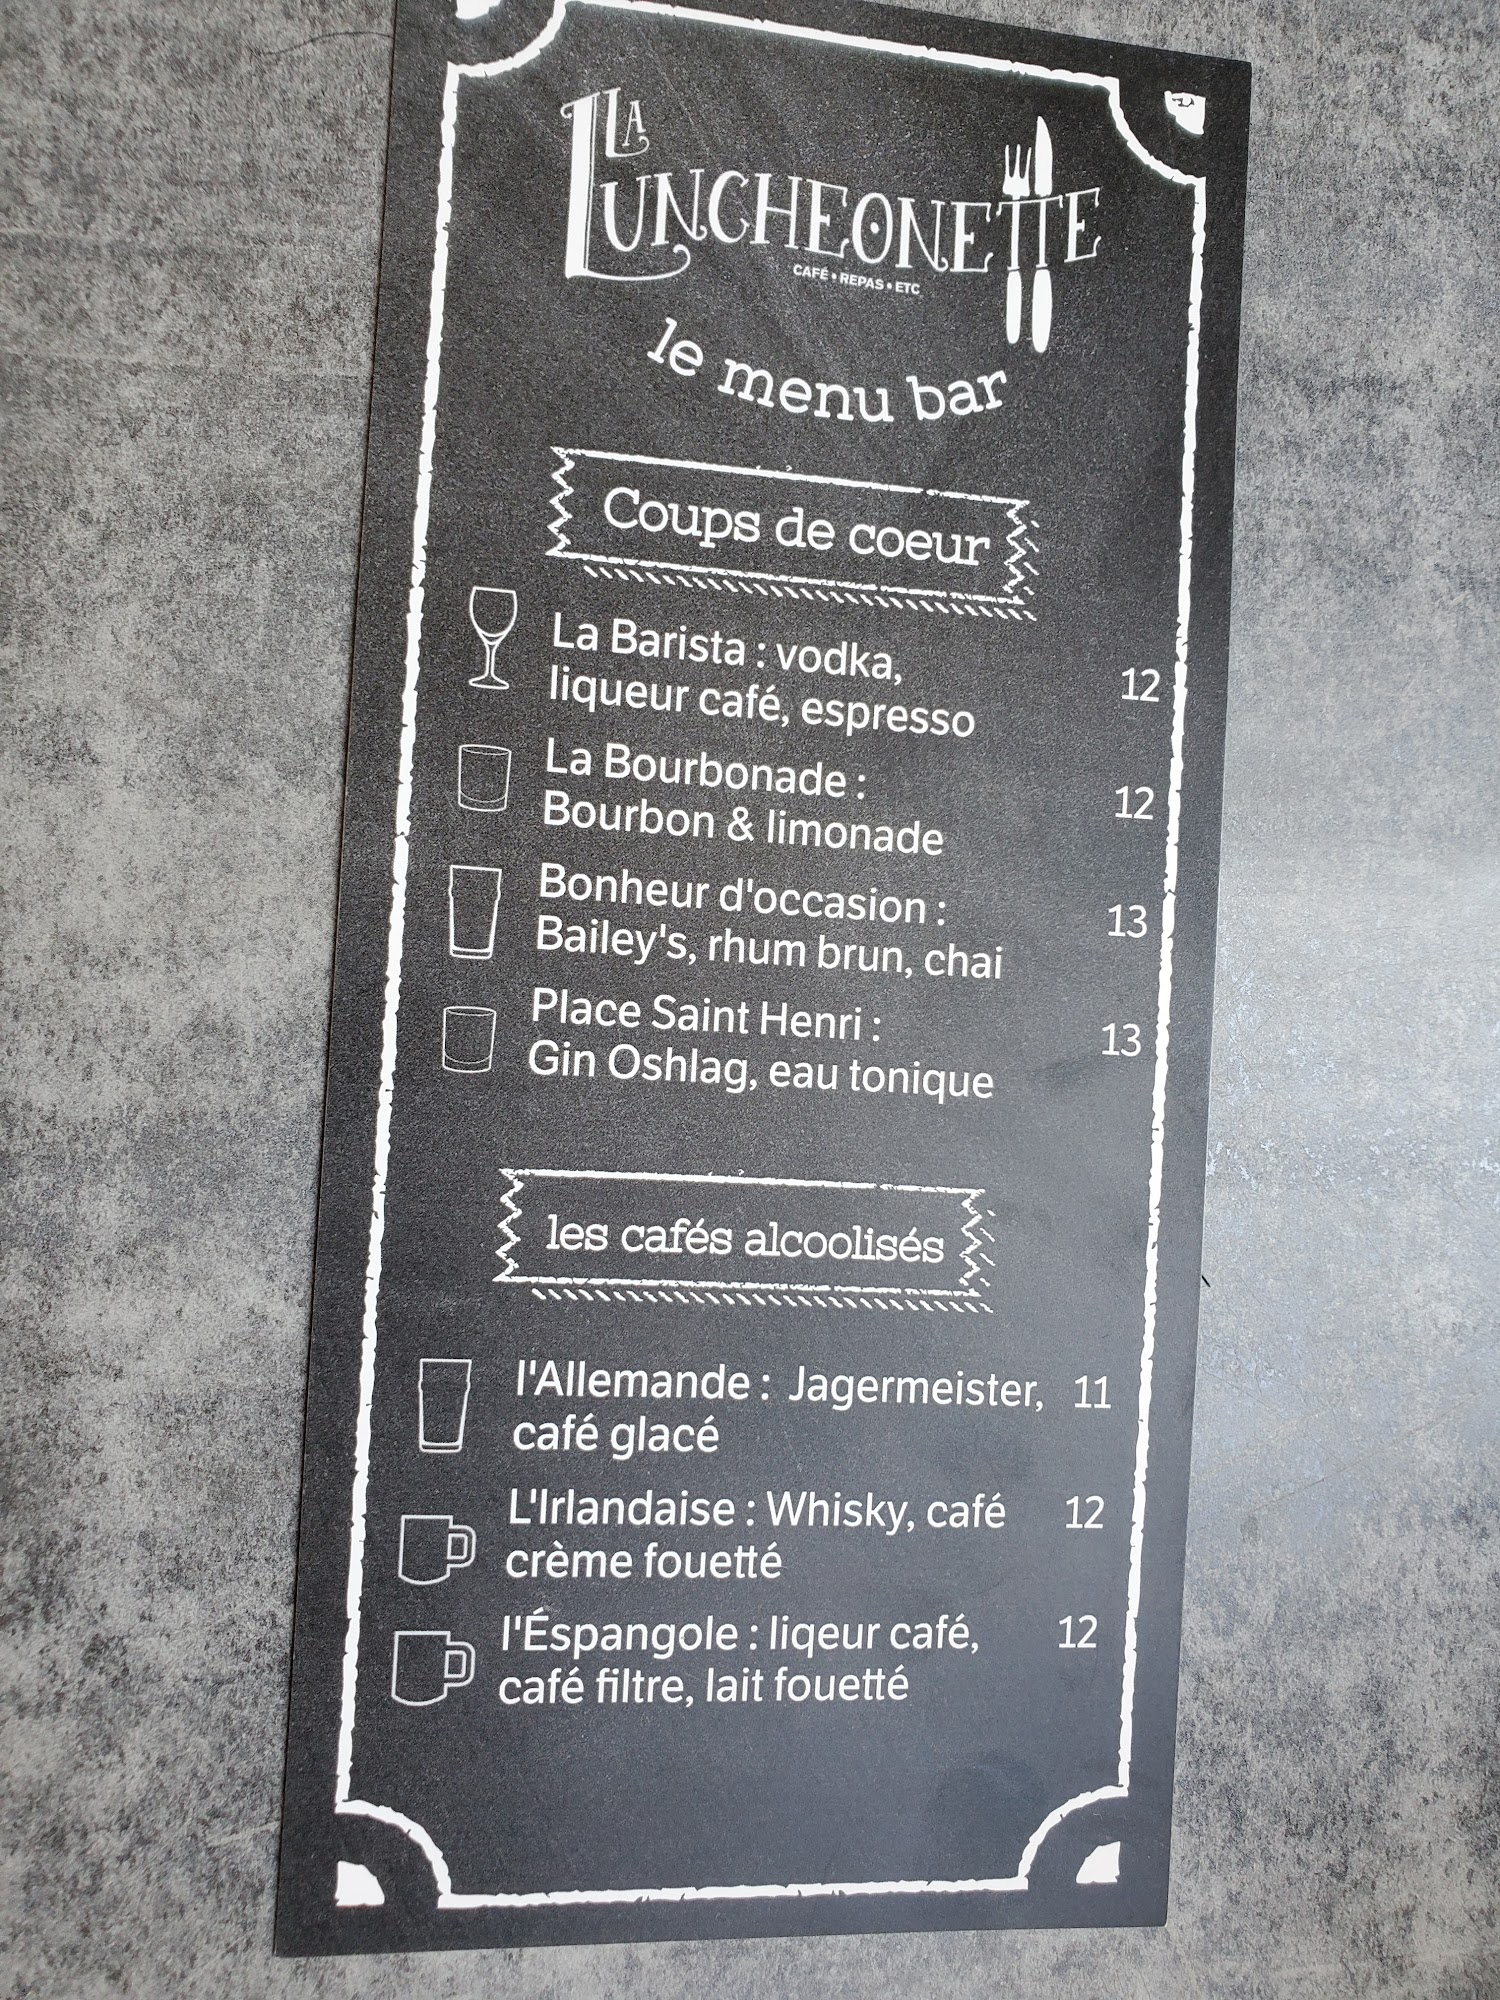 LA
LUNCHEONETTE
CAFÉ • REPAS • ETC
le menu bar
Coups de coeur
La Barista : vodka,
liqueur café, espresso 12
La Bourbonade :
Bourbon & limonade 12
Bonheur d'occasion :
Bailey's, rhum brun, chai 13
Place Saint Henri :
Gin Oshlag, eau tonique 13
les cafés alcoolisés
l'Allemande : Jagermeister, 11
café glacé
L'Irlandaise : Whisky, café 12
crème fouetté
l'Éspangole : liqeur café, 12
café filtre, lait fouetté